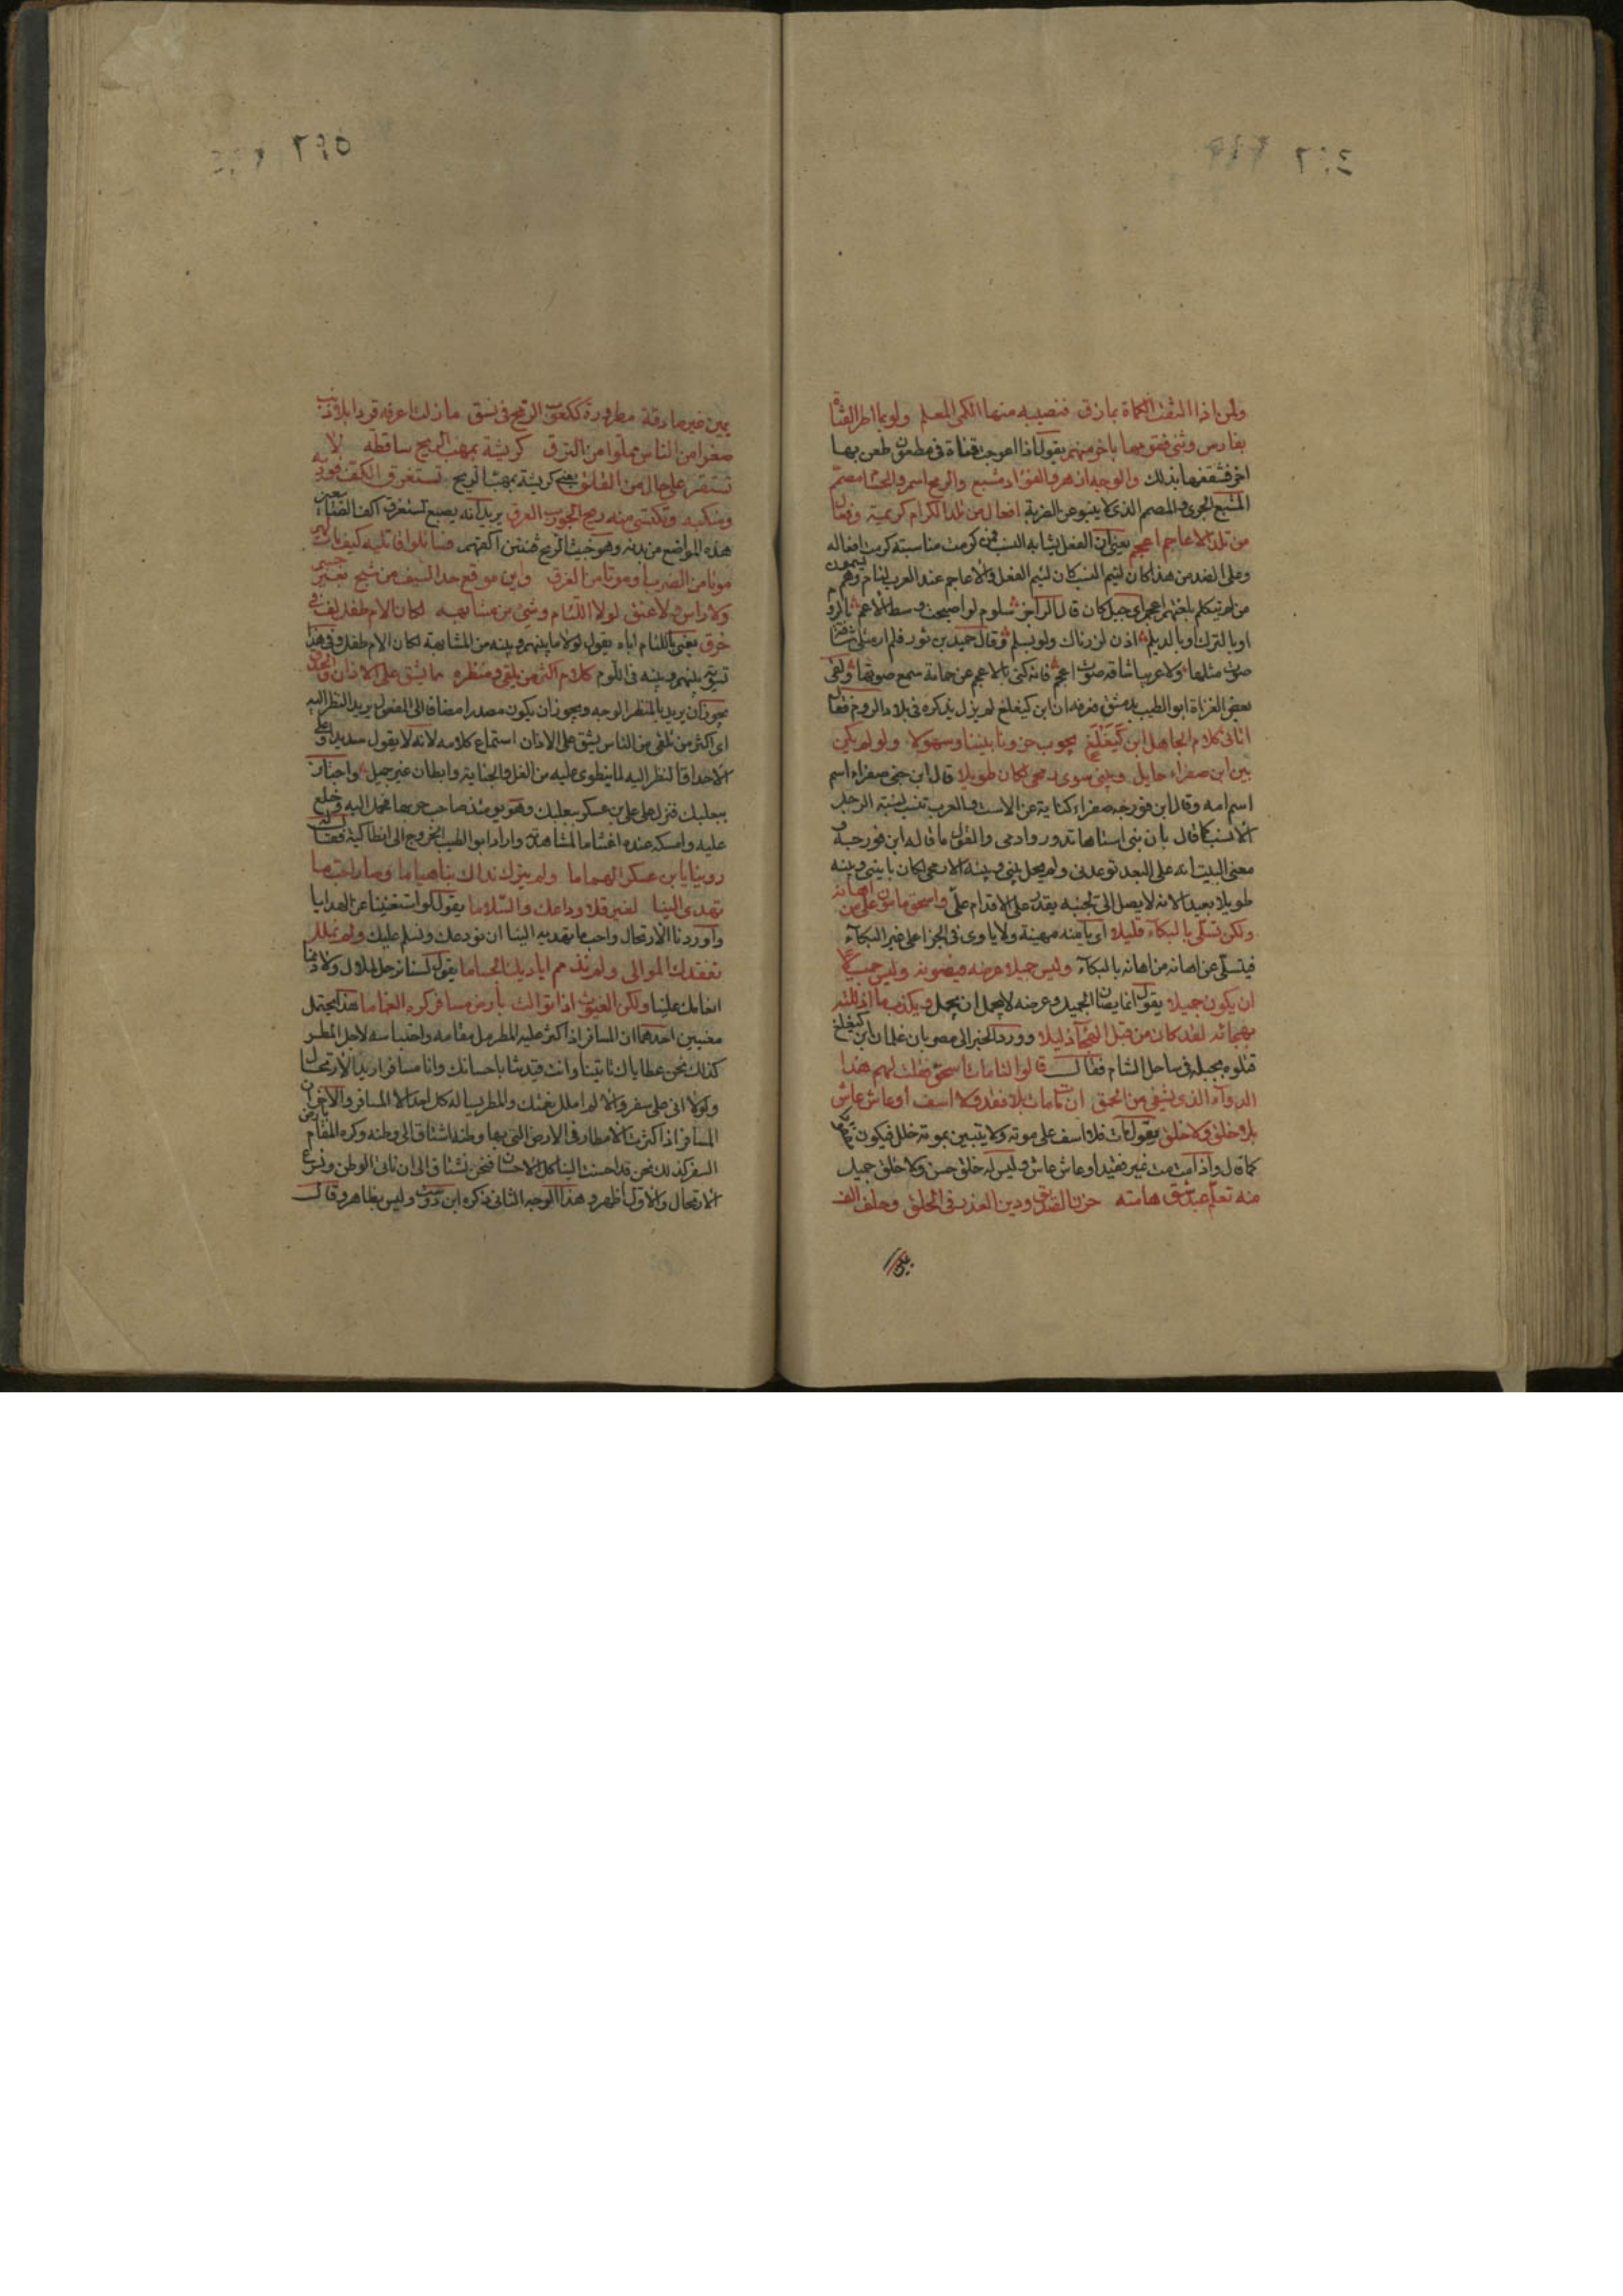 ٢٩٤
ولمن اذا التقت الكماة بمازق فنصيبه منها الكمى المعلم ولربما اطر القناة
بفارس وثنى فقومها باخر منهم يقول اذا اعوجت قناة فى مطعون طعن بها
اخر فتثقفها بذلك والوجه ازهر والفؤاد مشيع والرمح اسمر والحسام مصمم
المشيع الجرى والمصمم الذى لا ينبو عن الضريبة افعال من تلد الكرام كريمة وفعال
من تلد الاعاجم اعجم يعنى ان الفعل يشابه النسب فمن كرمت مناسبته كرمت افعاله
وعلى الضد من هذا كان لئيم النسب كان لئيم الفعل والاعاجم عند العرب لئام وهم يسمون
من لم يتكلم بلغتهم اعجم اى جيل كان قال الراجز سلوم لو اصبحت وسط الاعجم بالروم
او بالترك او بالديلم اذن لزرناك ولو بسلم وقال حميد بن ثور فلم ار مثلى شاقه
صوت مثلها ولا عربيا شاقه صوت اعجما فانه كنى بالاعجم عن حمامة سمع صوتها ولقى
بعض الغزاة ابو الطيب بدمشق فعرفه ان ابن كيغلغ لم يزل يذكره فى بلاد الروم فقال
اتانى كلام الجاهل ابن كيغلغ يجوب حزونا بيننا وسهولا ولو لم يكن
بين ابن صفراء حايل وبينى سوى رمحى لكان طويلا قال ابن جنى صفراء اسم
امه وقال ابن فورجه صفراء كناية عن الاست والعرب تنسب لنسبة الرجل
الاست كما قال بان بنى استاها تدور وادمى والقول ما قاله ابن فورجه
معنى البيت انه على البعد توعدنى ولو لم يحل بينى وبينه الا رمحى لكان ما بينى وبينه
طويلا بعيدا لانه لا يصل الى لجبنه يقدر على الاقدام على واسحق مامون على من اهانه
ولكن تسلى بالبكاء قليلا اى يا منه مهينة ولا ياوى فى الجزا على غير البكاء
فيتسلى عن اهانه من اهانه بالبكاء وليس جميلا عرضه فيصونه وليس جميلا
ان يكون جميلا يقول انما يصان الجميل وعرضه لا يجمل ان يجمل ويكذب ما اذللته
بهجائه لقد كان من قبل الهجاء ذليلا وورد الخبر الى مصر بان غلمان ابن كيغلغ
قتلوه بجبلة فى ساحل الشام فقال قالوا لنا مات اسحق فقلت لهم هذا
الدواء الذى يشفى من الحمق ان مات مات بلا فقد ولا اسف او عاش عاش
بلا خلق ولا خلق يقول ان مات فلا اسف على موته ولا يتبين بموته خلل فيكون
كما قال واذا مت مت غير فقيد او عاش عاش وليس له خلق حسن ولا خلق جميل
منه تعلم عبد شق هامته خون الصديق ودس الغدر فى الملق وحلف الف
يمين
٢٩٥
يمين غير صادقة مطرودة ككعوب الرمح فى نسق ما زلت اعرفه قردا بلا ذنب
صفرا من الناس مملوا من النزق كريشة بمهب الريح ساقطة لا
تستقر على حال من القلق يعنى كريشة بمهب الريح تستغرق الكف فوديه
ومنكبه وتكتسى منه ريح الجورب العرق يريد انه يصفع تستغرق اكف الصفاعين
هذه المواضع من بدنه وهو خبيث الريح فتنتن اكفهم فسائلوا قاتليه كيف مات لهم
موتا من الضرب او موتا من الفرق واين موقع حد السيف من شبح بغير جسم
ولا راس ولا عنق لولا اللئام وشئ من مشابهه لكان الام طفل لف فى
خرق يعنى باللئام اباه يقول لولا ما بينهم وبينه من المشابهة لكان الام طفل وفى هذا
تسوية بينهم وبينه فى اللوم كلام اكثر من يلقى ومنظره مما يشق على الاذان والحدق
يجوز ان يريد بالمنظر الوجه ويجوز ان يكون مصدرا مضافا الى المفعول يريد النظر اليه
اى اكثر من تلقى من الناس يشق على الاذان استماع كلامه لانه لا يقول سديدا وعلى
الاحداق النظر اليه لما ينطوى عليه من الغل والجناية وابطان غير جميل واجتاز
ببعلبك فنزل على على بن عسكر ببعلبك وهو يومئذ صاحب حربها فحمل اليه وخلع
عليه وامسكه عنده اغتناما لمشاهدته واراد ابو الطيب الخروج الى انطاكية فقال له
روينا يا ابن عسكر الهماما ولم يترك نداك بنا هياما وصار احب ما
تهدى الينا لغير قلا وداعك والسلاما يقول لكوا استغنينا عن الهدايا
واوردنا الارتحال واحب ما تهديه الينا ان نودعك ونسلم عليك ولم نملل
تفقدك الموالى ولم نذمم اياديك الجساما يقول لسنا نرحل لملال ولا ذممنا
انعامك علينا ولكن الغيوث اذا توالت بارض مسافر كره الغماما هذا يحتمل
معنيين احدهما ان المسافر اذا كثر عليه المطر مل مقامه واحتباسه لاجل المطر
كذلك نحن عطاياك تاتينا وانت قيدتنا باحسانك وانا مسافر اريد الارتحال
ولولا انى على سفر والا لم املل نعمتك والمطر يساله كل احد الا المسافر والاخر ان
المسافر اذا كثرت الامطار فى الارض التى بها وطنه اشتاق الى وطنه وكره المقام بارض
السفر كذلك نحن قد احسنت الينا كل الاحسان فنحن نشتاق الى ان ناتى الوطن ونسرع
الارتحال والاول اظهر وهذا الوجه الثانى ذكره ابن دوست وليس بظاهر وقال